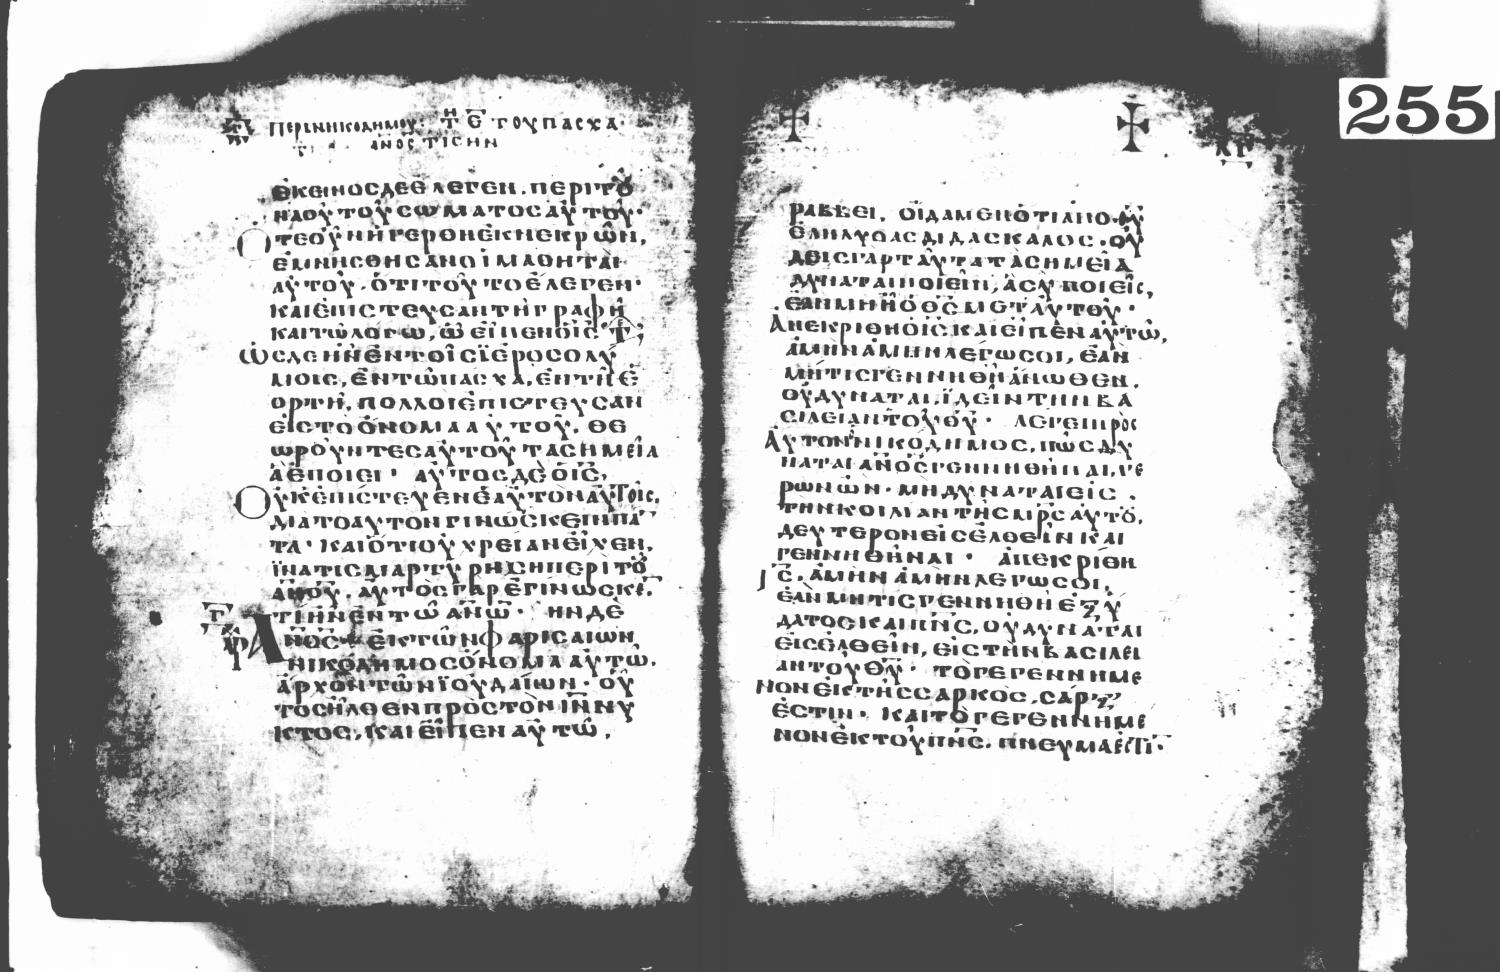 255
Περινικοδημου· τη ε του πασχα·
ανος τισ ην
εκεινοσδεελεγεν. περιτο
ναουτουσωματοσαυτου·
Οτεουνηγερθηεκνεκρων,
εμνησθησανοιμαθηται
αυτου. οτιτουτοελεγεν·
καιεπιστευσαντηγραφη
καιτωλογω, ωειπενοις
ωσδεηνεντοισϊεροσολυ
μοις, εντωπασχα, εντηε
ορτη, πολλοιεπιστευσαν
ειστοονομααυτου. θε
ωρουντεσαυτουτασημεια
αεποιει· αυτοσδεοις,
Ουκεπιστευενεαυτοναυτοις,
διατοαυτονγινωσκεινπα
τα· καιοτιουχρειανειχεν,
ϊνατισμαρτυρησηπεριτο
ανου. αυτοσγαρεγινωσκε,
τιηνεντωανω· ηνδε
Ανοσεκτωνφαρισαιων
νικοδημοσονομααυτω.
αρχοντωνϊουδαιων· ου
τοσηλθενπροστονιννυ
κτος, καιειπεναυτω,
ραββει, οιδαμενοτιαποθυ
εληλυθασδιδασκαλος· ου
δεισγαρταυτατασημεια
δυναταιποιειν, ασυποιεις,
εανμηηοθσμεταυτου·
Απεκριθηοισκαιειπεναυτω,
αμηναμηνλεγωσοι, εαν
μητισγεννηθηανωθεν,
ουδυναται, ϊδειντηνβα
σιλειαντουθυ· λεγειπρος
Αυτοννικοδημος, πωσδυ
ναταιανοσγεννηθηναι, γε
ρωνων· μηδυναταιεις
τηνκοιλιαντησμρσαυτο,
δευτερονεισελθεινκαι
γεννηθηναι· απεκριθη
ις, αμηναμηνλεγωσοι,
εανμητισγεννηθηεξυ
δατοσκαιπνς, ουδυναται
εισελθειν, ειστηνβασιλει
αντουθυ· τογεγεννημε
νονεκτησσαρκος, σαρξ
εστιν· καιτογεγεννημε
νονεκτουπνς, πνευμαεστι·